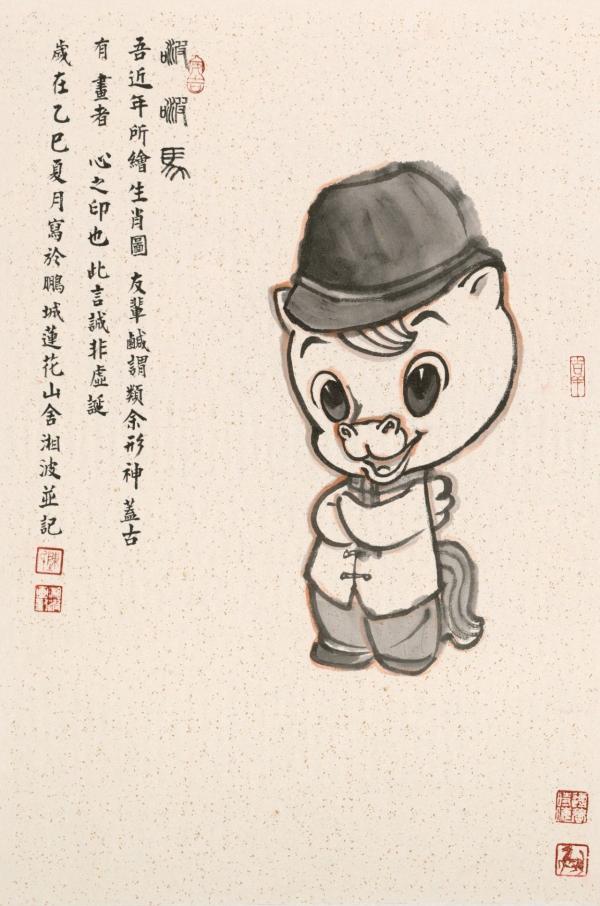 啵啵馬
吾近年所繪生肖圖友輩鹹謂類余形神蓋古
有畫者心之印也此言誠非虛誕
歲在乙巳夏月寫於鵬城蓮花山舍湘波並記